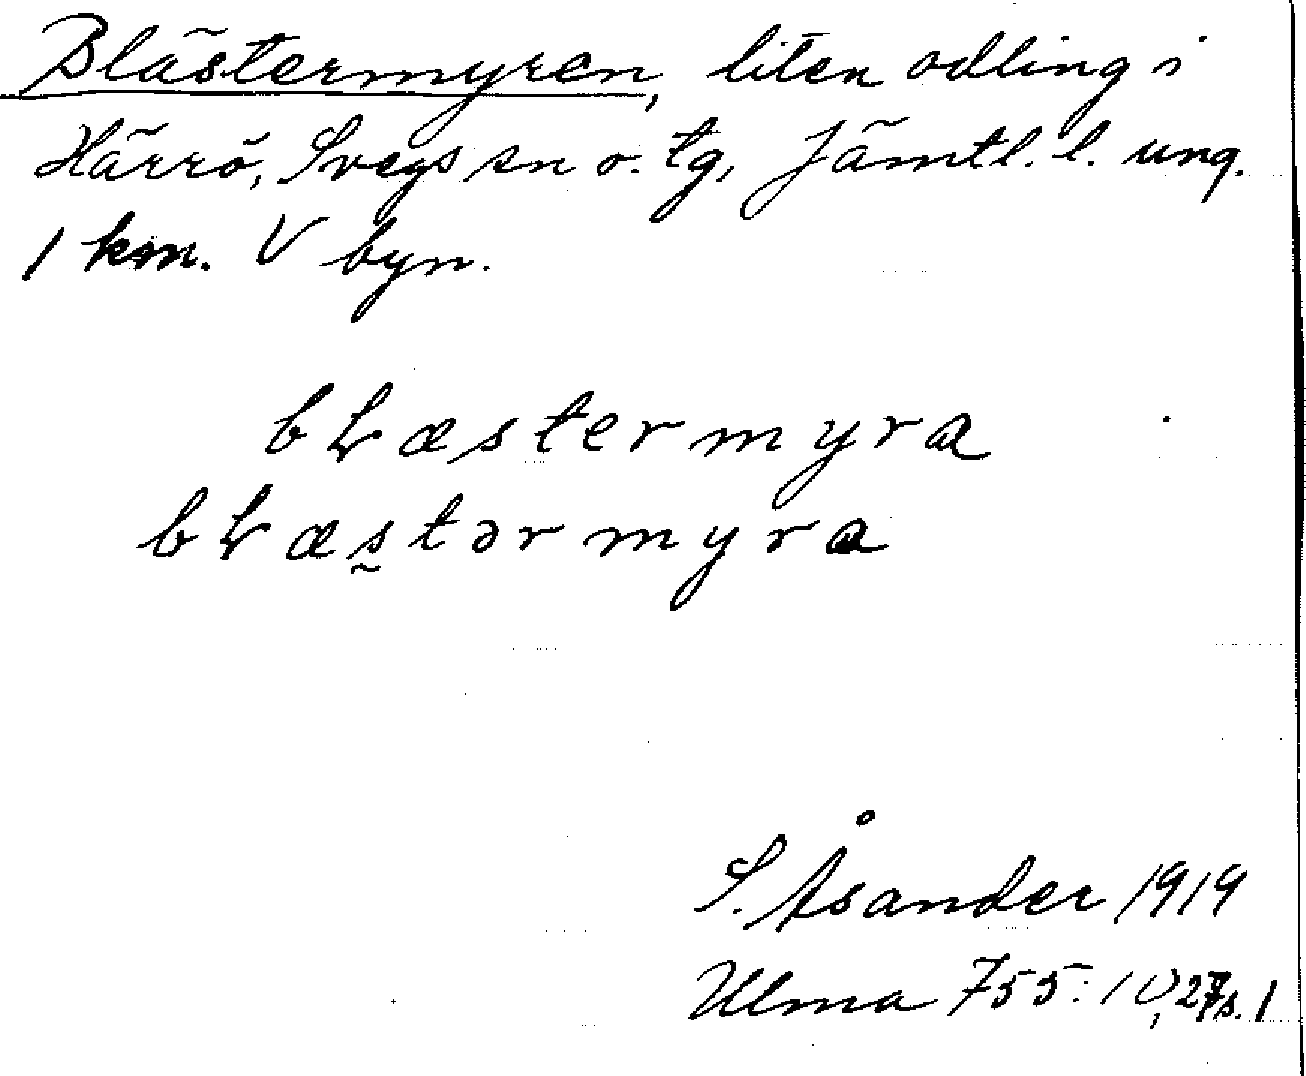 Blästermyren, liten odling i
Härrö, Svegs sn o. tg, Jämtl. l. ung.
1 km. V byn.
bḷæstermyra
bḷæs̰tərmyra
S. Åsander 1919
Ulma 755: 10, s. 1